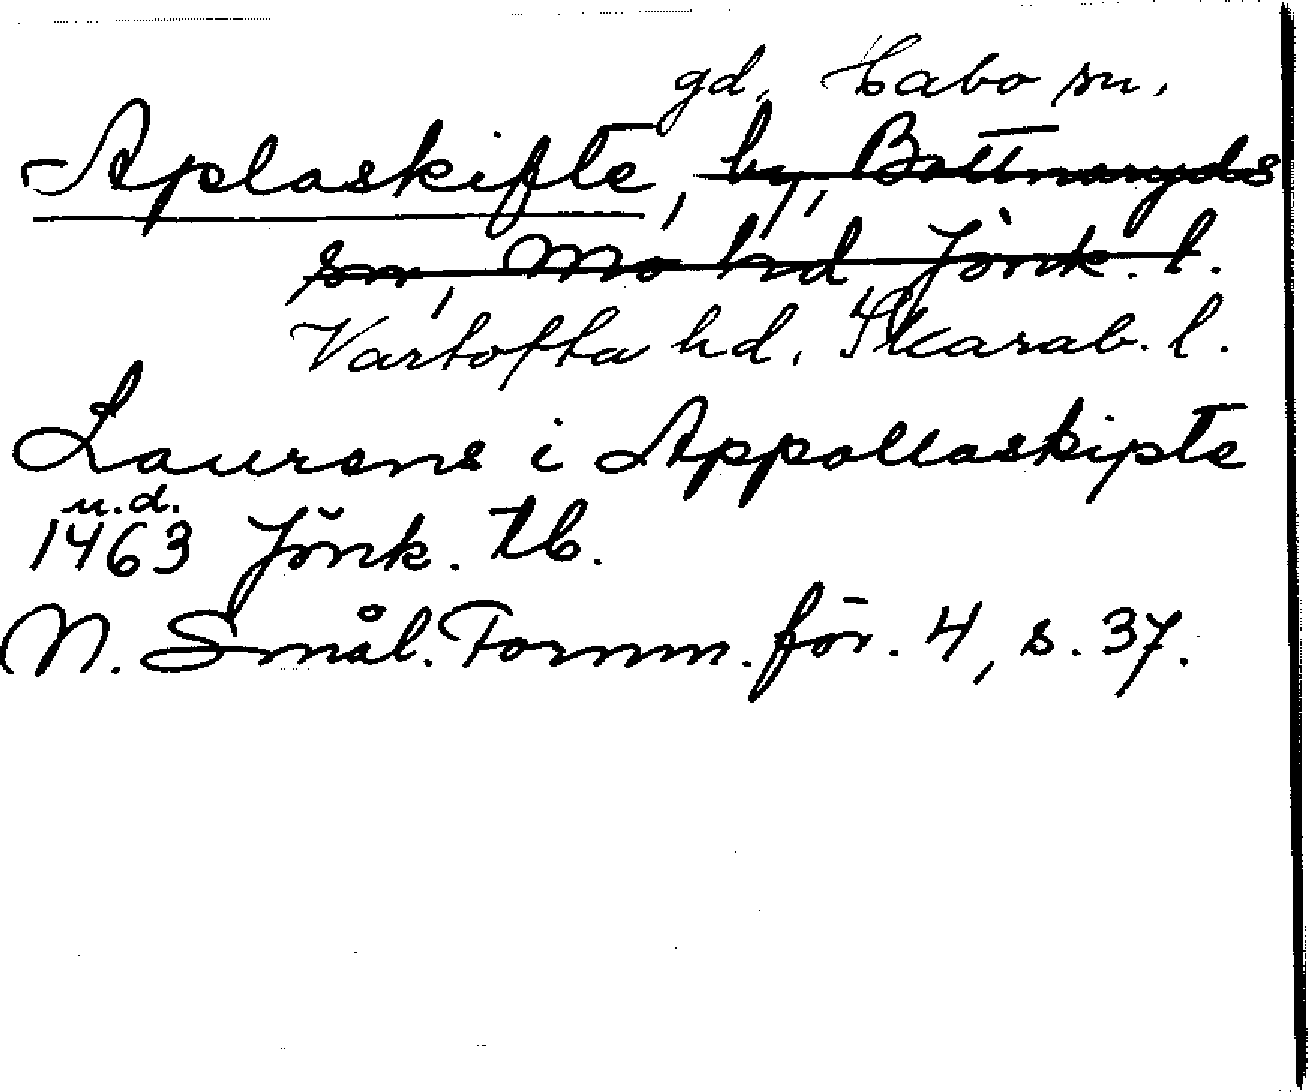 gd. Habo sn.
Aplaskifte, by, Bottnaryds
sn, Mo hd, Jönk. l.
Vartofta hd, Skarab. l.
Laurens i Appollaskipte
u.d.
1463 Jönk. tb.
N. Smål. Fornm. för. 4, s. 37.